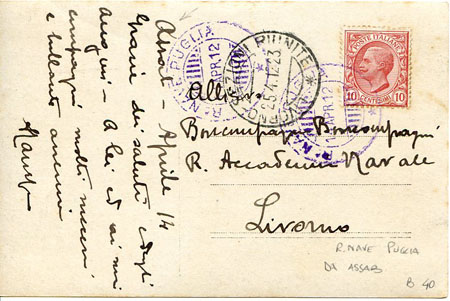 Assab - Aprile 14
Grazie dei saluti e degli
auguri - A lei ed ai miei
compagni molti
e brillanti
R. NAVE PUGLIA
APR.12
RIUNITE
LIVORNO
25.4.12.23
POSTE ITALIANE
10 CENTESIMI 10
R. NAVE
APR 12
All
Boncompagni Boncompagni
R. Accademia Navale
Livorno
R. NAVE PUGLIA
DA ASSAB
B 40